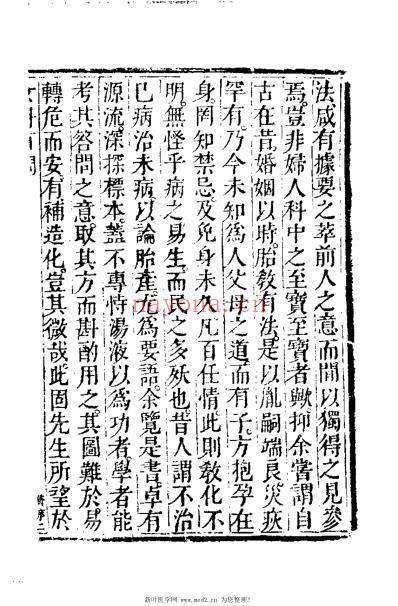 法咸有據要之萃前人之意而間以獨得之見參
焉豈非婦人科中之至寶至寶者歟抑余嘗謂自
古在昔婚姻以時胎教有法是以胤嗣端良災疢
罕有乃今未知為人父母之道而有子方抱孕在
身罔知禁忌及免身未久凡百任情此則敎化不
明無怪乎病之易生而民之多殀也昔人謂不治
已病治未病以論胎產尤為要語余覽是書卓有
源流深探標本蓋不專恃湯液以為功者學者能
考其答問之意取其方而斟酌用之其圖難於易
轉危而安有補造化豈其微哉此固先生所望於
女科百問
序二
nayona.cn
新叶医学网 www.med2.cn 为您整理!